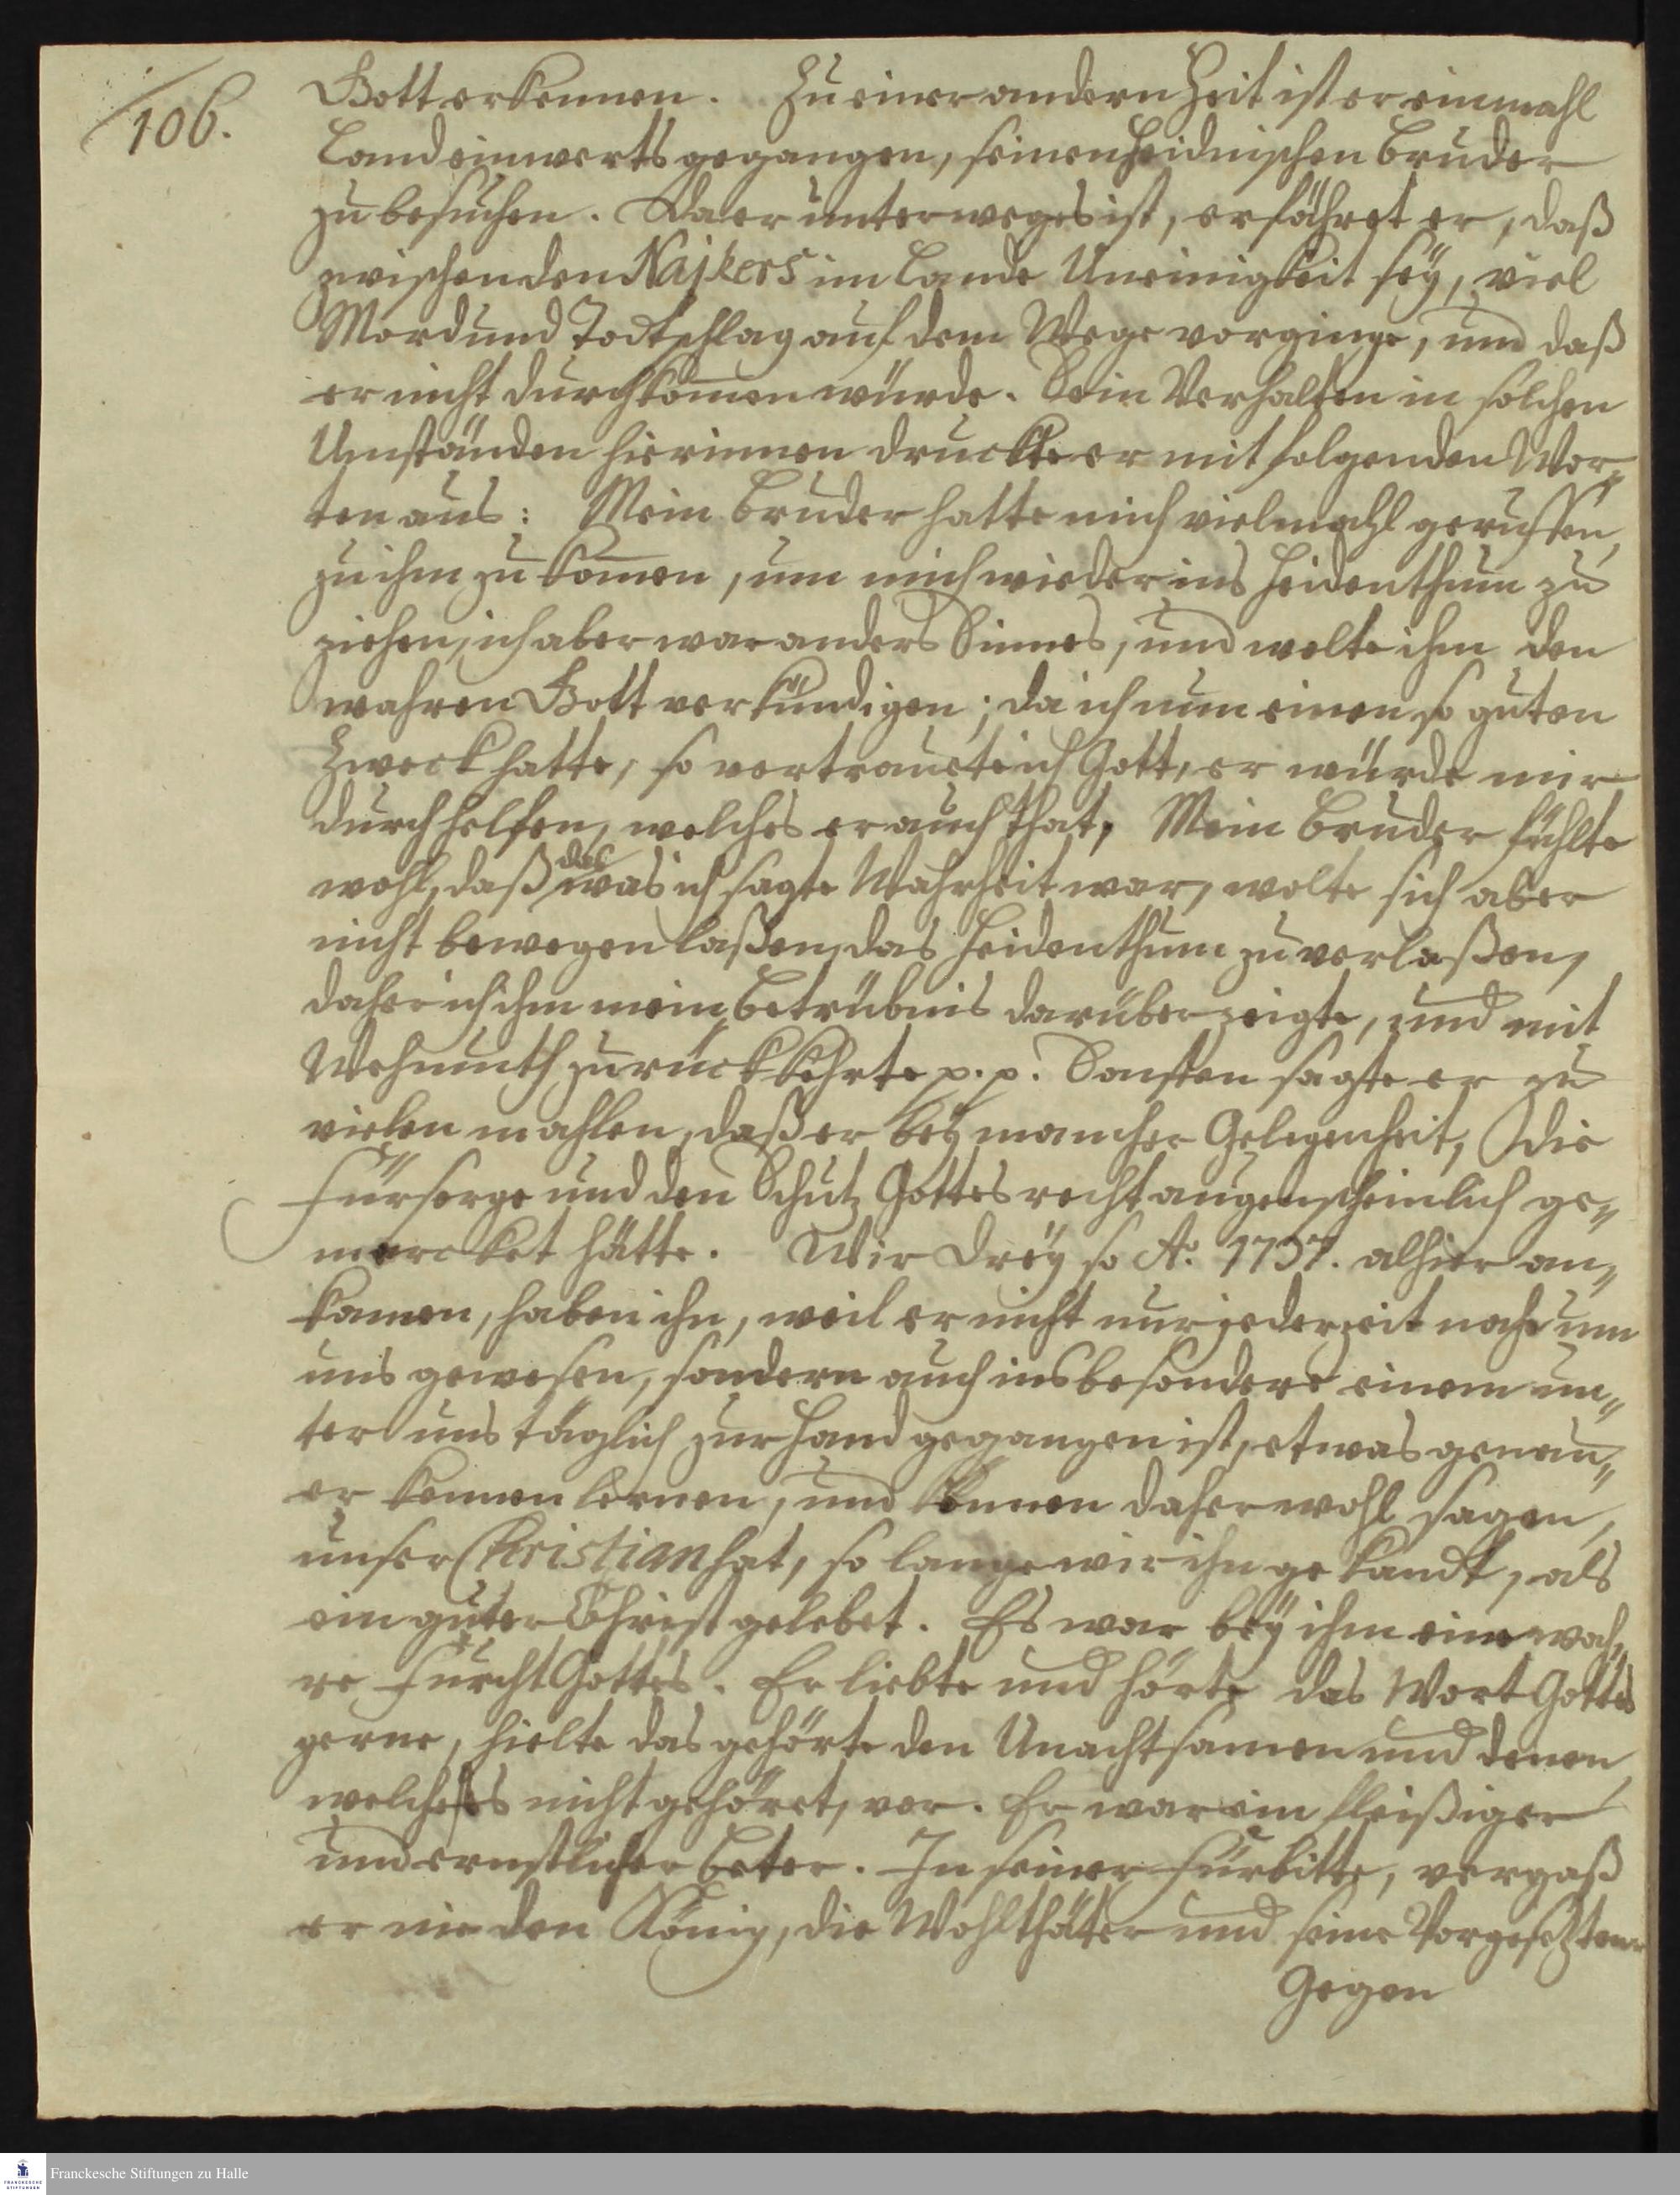 106.
Gott erkennen. Zu einer andern Zeit ist er einmahl
Landeinwerts gegangen, seinen Heidnischen Bruder
zu besuchen. Da er unterweges ist, erfähret er, daß
zwischen den Najkers im Lande Uneinigkeit sey, viel
Mord und Todtschlag auf dem Wege vorginge, und daß
er nicht durchkom̅en würde. Sein Verhalten in solchen
Umständen hierinnen druckte er mit folgenden Wor„
ten aus: Mein Bruder hatte mich vielmahl geruffen,
zu ihm zu kom̅en, um mich wieder ins Heidenthum zu
ziehen, ich aber war anders Sinnes, und wolte ihm den
wahren Gott verkündigen; da ich nun einen so guten
Zweck hatte, so vertrauete ich Gott, er würde mir
durchhelfen, welches er auch that, Mein Bruder fühlte
wohl, daß das was ich sagte Wahrheit war, wolte sich aber
nicht bewegen laßen, das Heidenthum zu verlaßen,
daher ich ihm mein Betrübnis darüber zeigte, und mit
Wehmuth zurück kehrte p. p. Sonsten sagte er zu
vielen mahlen, daß er bey mancher Gelegenheit, die
Fürsorge und den Schutz Gottes recht augenscheinlich ge„
mercket hätte. Wir drey so Ao. 1737. alhier an„
kamen, haben ihn, weil er nicht nur jederzeit nahe um
uns gewesen, sondern auch insbesondere einem un„
ter uns täglich zur Hand gegangen ist, etwas genau„
er kennen lernen, und können daher wohl sagen,
unser Christian hat, so lange wir ihn gekandt, als
ein guter Christ gelebet. Es war bey ihm eine wah„
re Furcht Gottes. Er liebte und hörte das Wort Gottes
gerne, hielte das gehörte den Unachtsamen und denen,
welche es nicht gehöret, vor. Er war ein fleißiger
und ernstlicher Beter. In seiner Fürbitte, vergaß
er nie den König, die Wohlthäter und seine Vorgesetzten
Gegen
Franckesche Stiftungen zu Halle
FRANCKESCHE
STIFTUNGEN